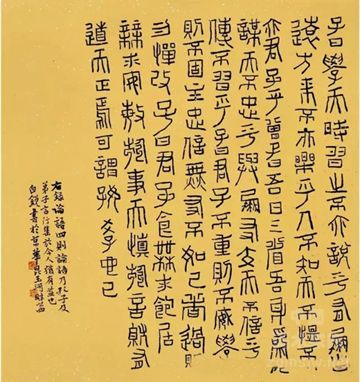 子曰學而時習之不亦說乎有朋自
遠方來不亦樂乎人不知而不慍不
亦君子乎曾子曰吾日三省吾身爲人
謀而不忠乎與朋友交而不信乎
傳不習乎子曰君子不重則不威學
則不固主忠信無友不如己者過則
勿憚改子曰君子食無求飽居
無求安敏於事而慎於言就有
道而正焉可謂好學也已
右録論語四則論語乃孔子及
弟子言行集於今人猶有益也
書於京華